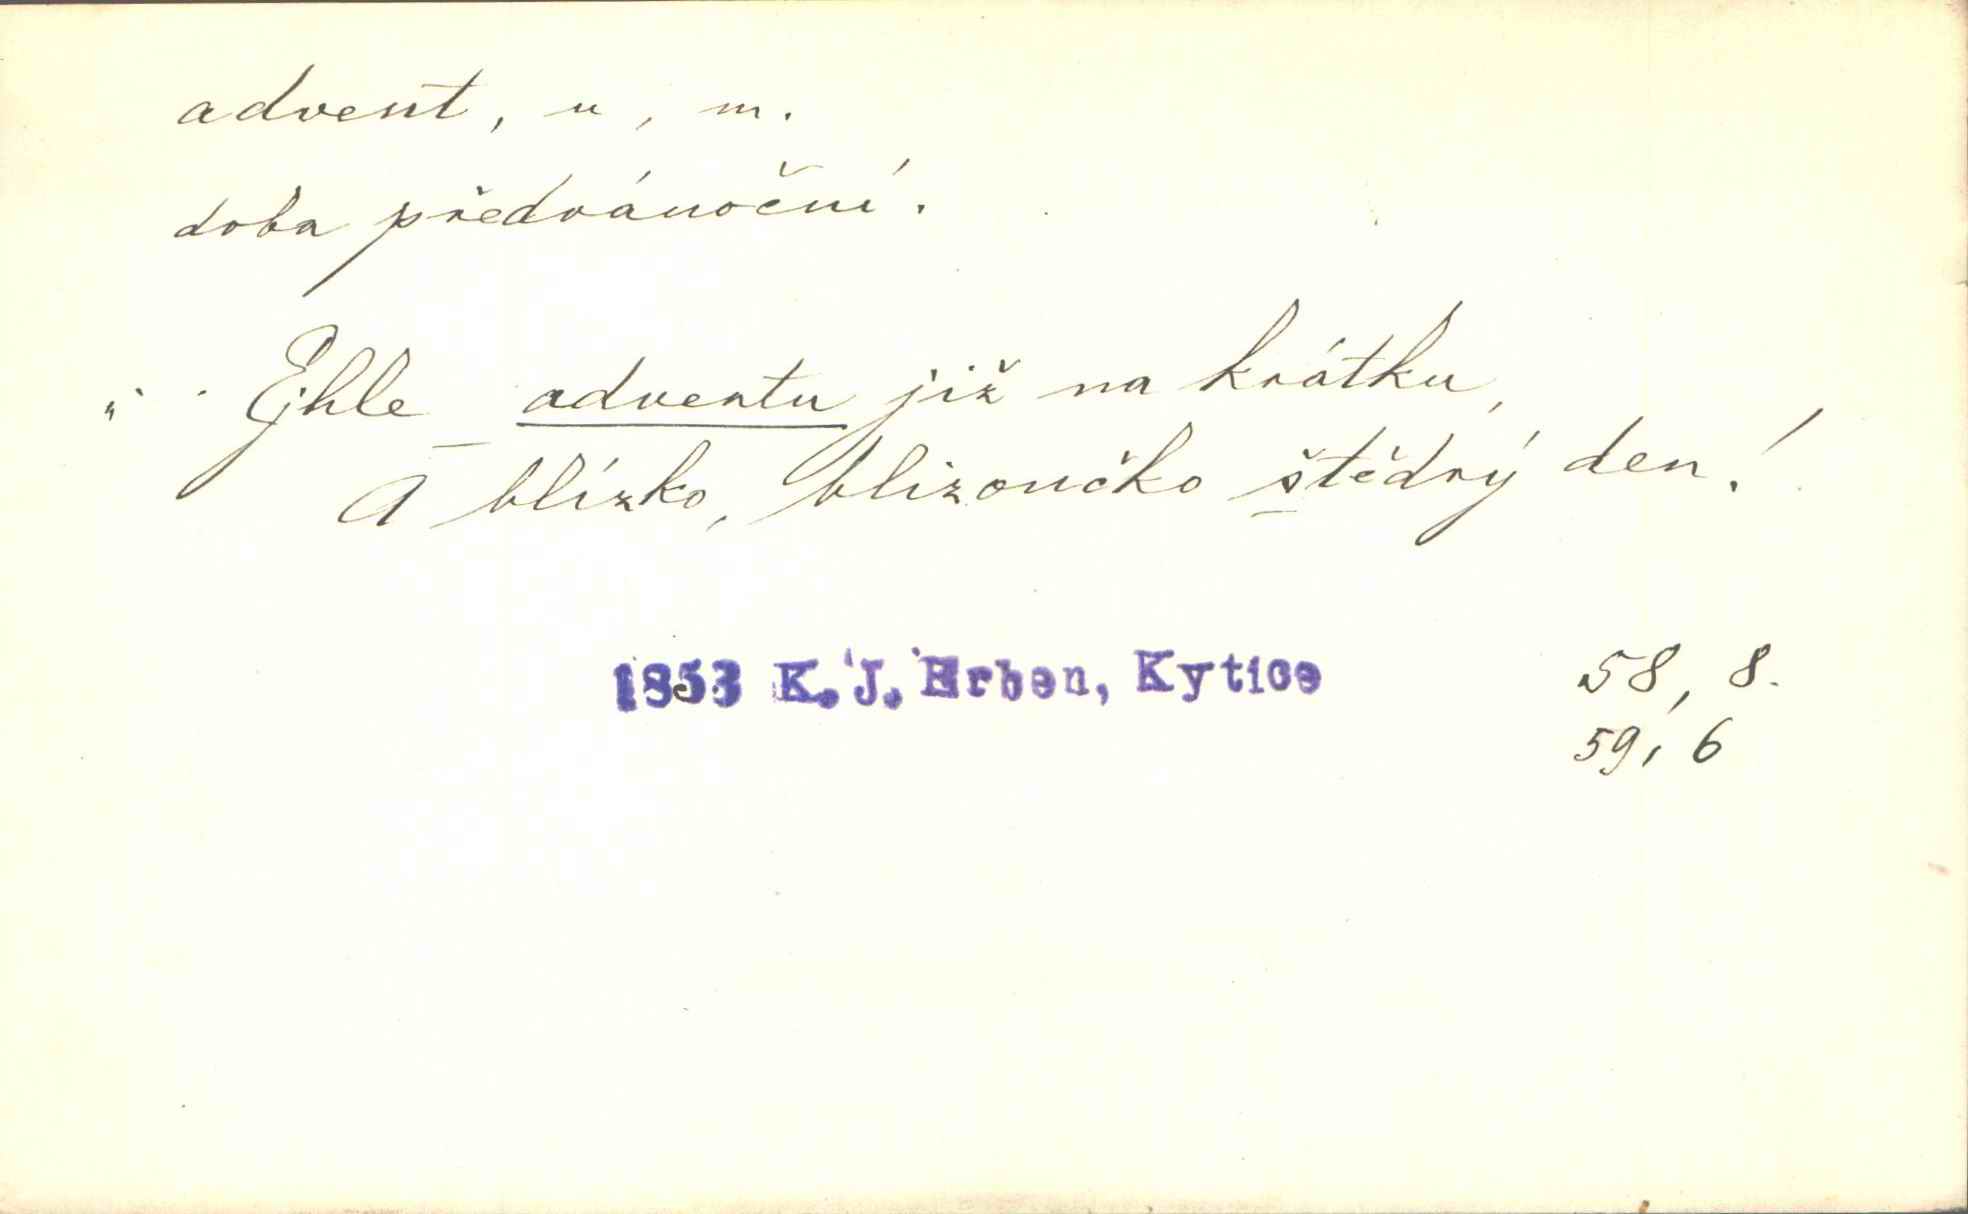 advent, u, m.
doba předvánoční.
Ejhle adventu již na krátku,
A blízko, blizoučko štědrý den!
1853 K. J. Erben, Kytice 58, 8.
59, 6